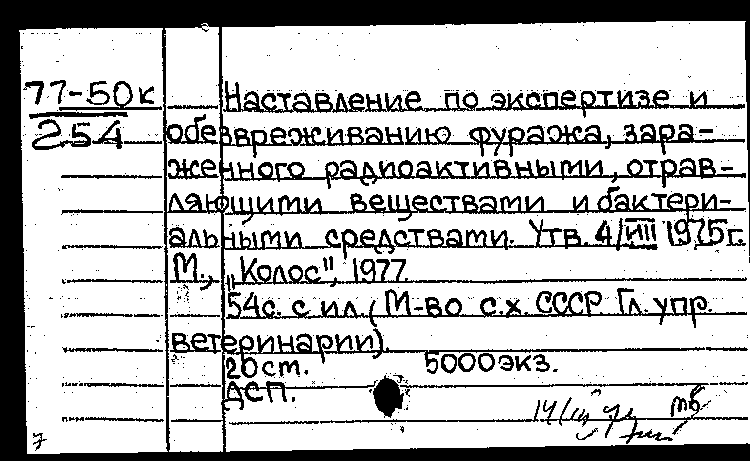 77-50к
254
Наставление по экспертизе и
обезвреживанию фуража, зара-
женного радиоактивными, отрав-
ляющими веществами и бактери-
альными средствами. Утв. 4/VIII 1975г.
М., "Колос", 1977.
54с. с ил. (М-во с.х. СССР Гл. упр.
ветеринарии).
20 ст. 5000 экз.
ДСП.
7